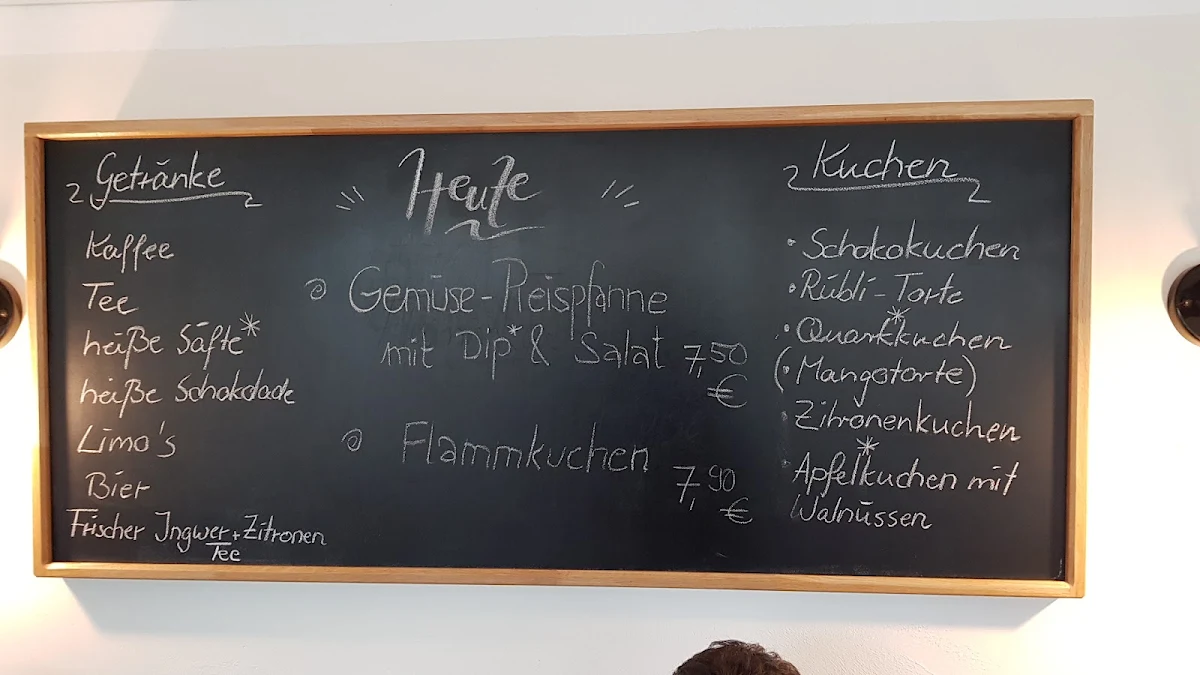 Getränke
Kaffee
Tee
heiße Säfte*
heiße Schokolade
Limo's
Bier
Frischer Ingwer + Zitronen
Tee
Heute
Gemüse-Reispfanne
mit Dip* & Salat 7,50
€
Flammkuchen
7,90
€
Kuchen
• Schokokuchen
• Rübli-Torte
• Quarkkuchen*
(• Mangotorte)
• Zitronenkuchen
• Apfelkuchen* mit
Walnüssen